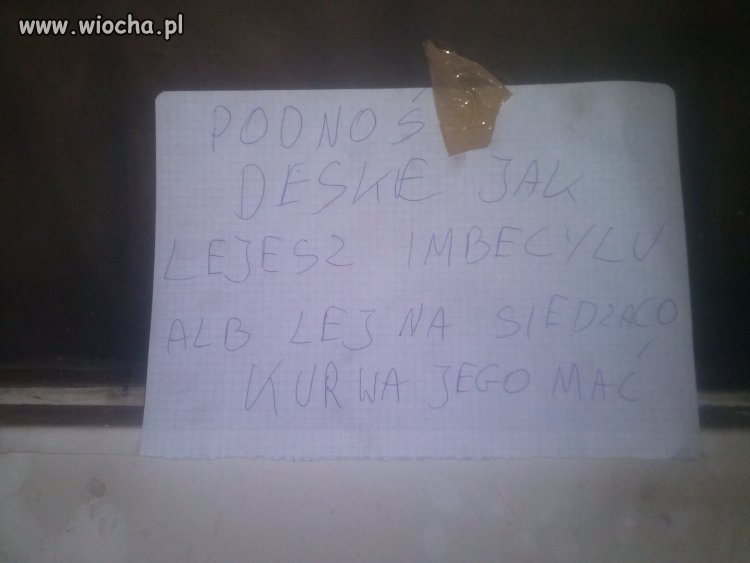 www.wiocha.pl
PODNOŚ
DESKE JAK
LEJESZ IMBECYLU
ALB LEJ NA SIEDZĄCO
KURWA JEGO MAĆ